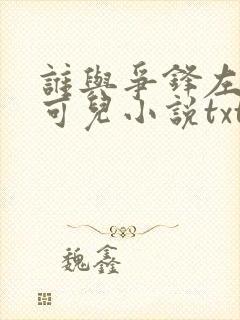 誰與爭鋒左
可兒小説txt
魏鑫